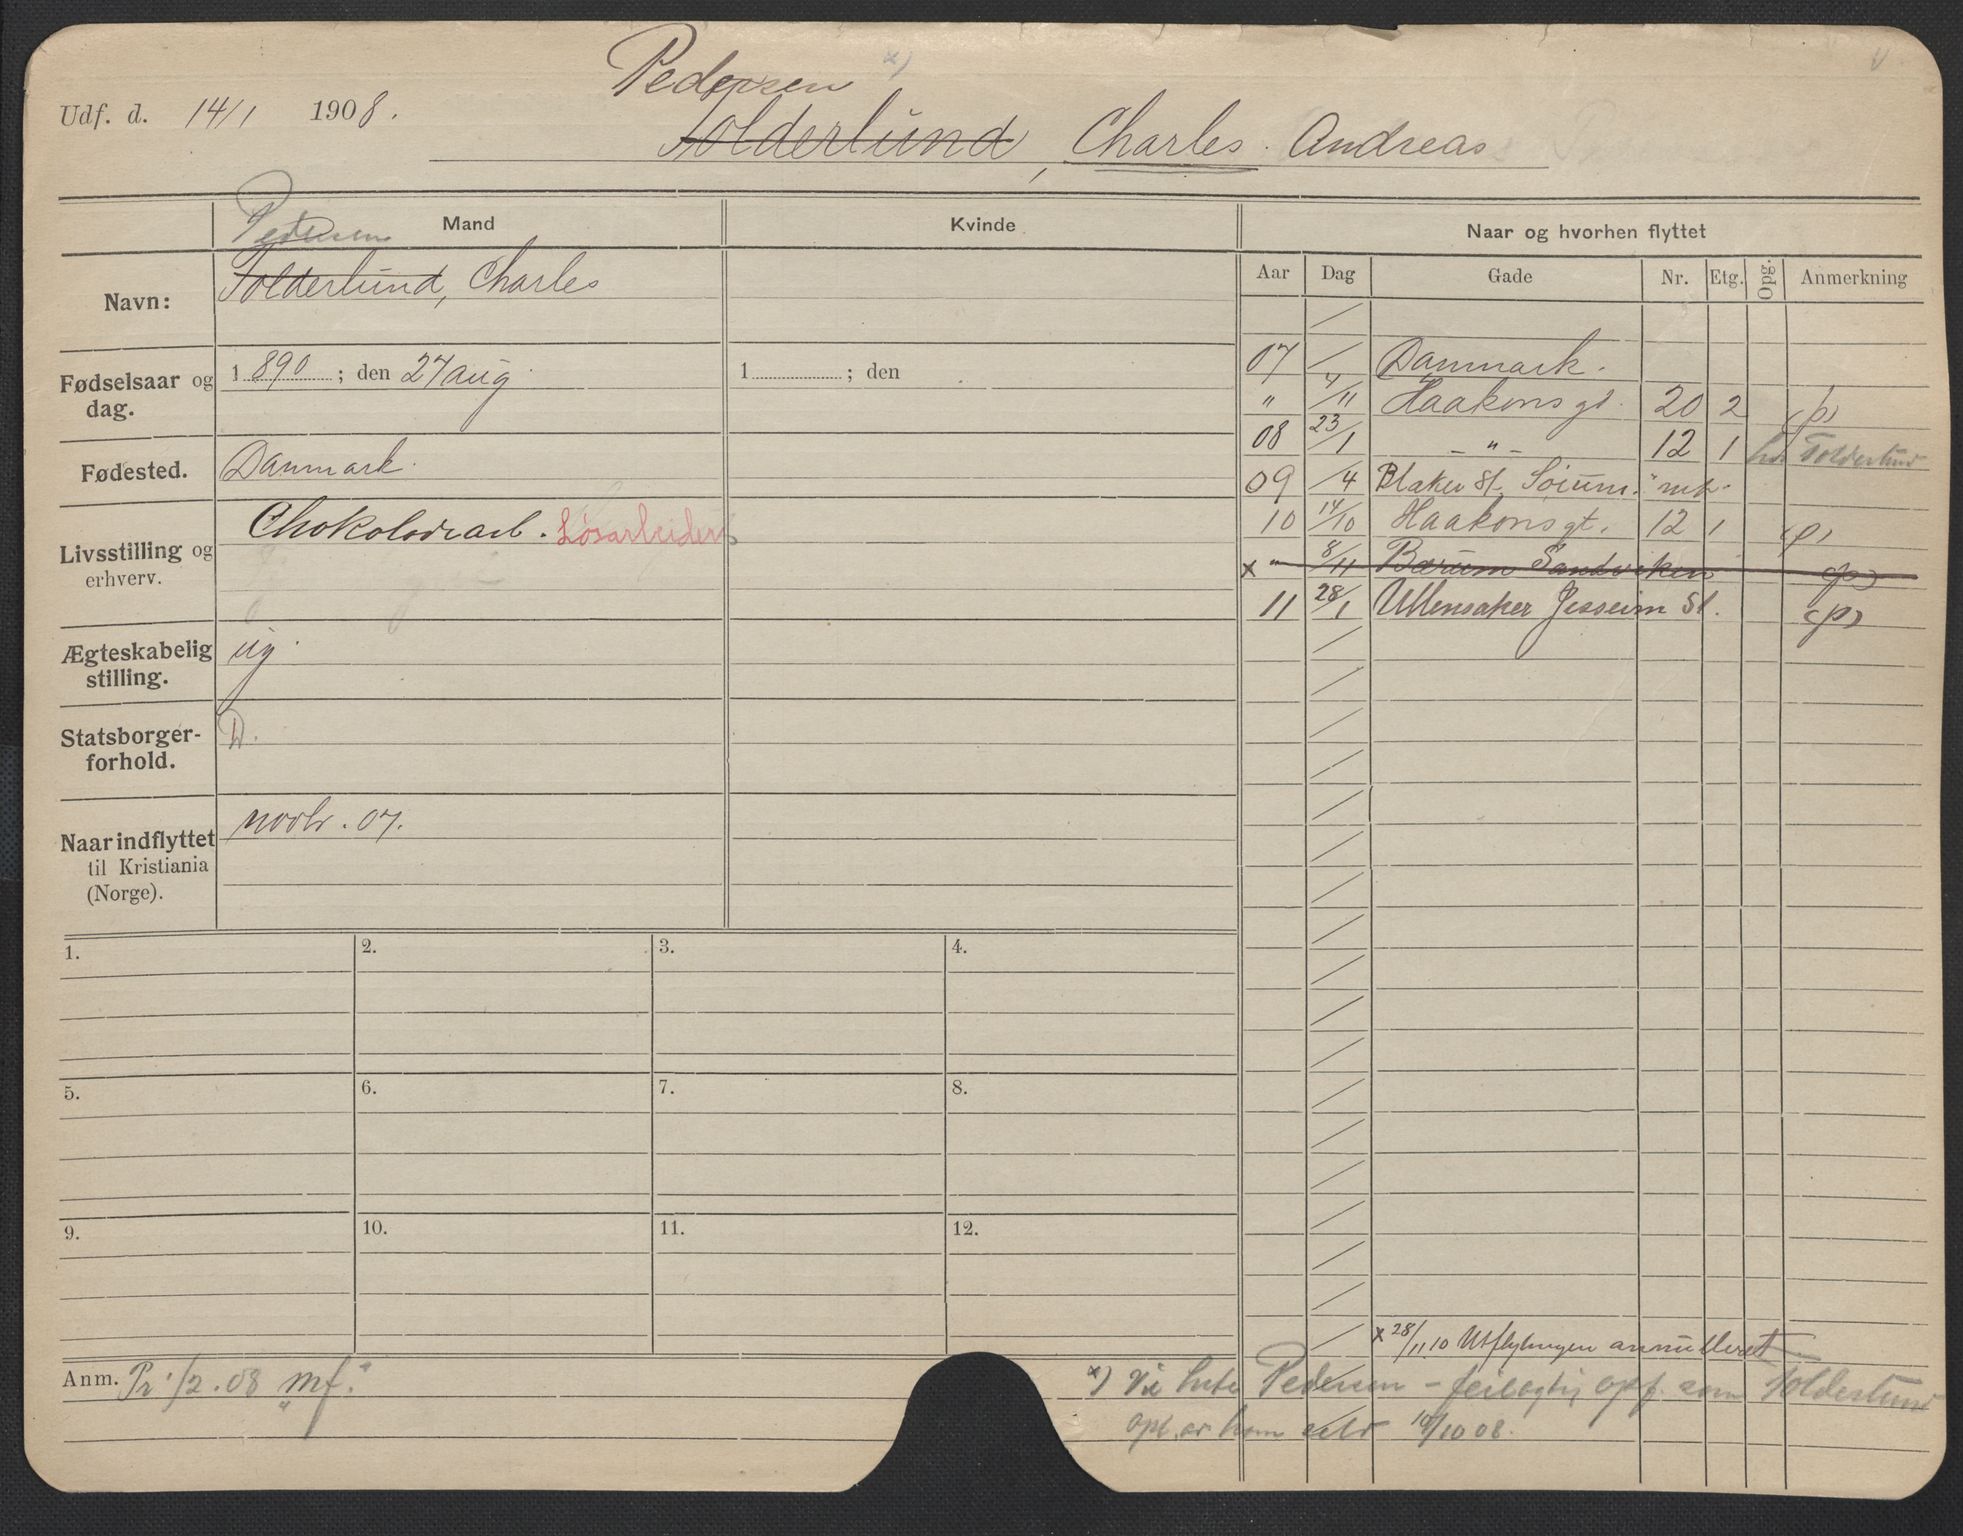 Pedersen x)
Udf. d. 14/1 1908.
Tolderlund, Charles. Andreas
Pedersen
Mand
Kvinde
Naar og hvorhen flyttet
Navn:
Tolderlund, Charles
Aar Dag Gade Nr. Etg. Opg. Anmerkning
Fødselsaar og dag.
1890; den 27 aug
1 ; den
07 / Danmark.
" 4/11 Haakonsgt. 20 2 (p)
08 23/1 - " - 12 1 hos Tolderlund
Fødested.
Danmark.
09 /4 Blaker St. Sørum.
10 14/10 Haakonsgt. 12 1 (p)
Livsstilling og
erhverv.
Chokoladearb. Løsarbeider
x " 8/11 Bærum Sandviken (p)
11 28/1 Ullensaker Jesseim St. (p)
Ægteskabelig
stilling.
ug
Statsborger-
forhold.
D.
Naar indflyttet
til Kristiania
(Norge).
novbr. 07.
1. 2. 3. 4.
5. 6. 7. 8.
9. 10. 11. 12.
x 28/11 10 Utflytningen annulleret
Anm. Pr. 1/2.08 mf.
x) Pedersen - feilagtig opf. som Tolderlund
opl. av ham selv 10/10 08.